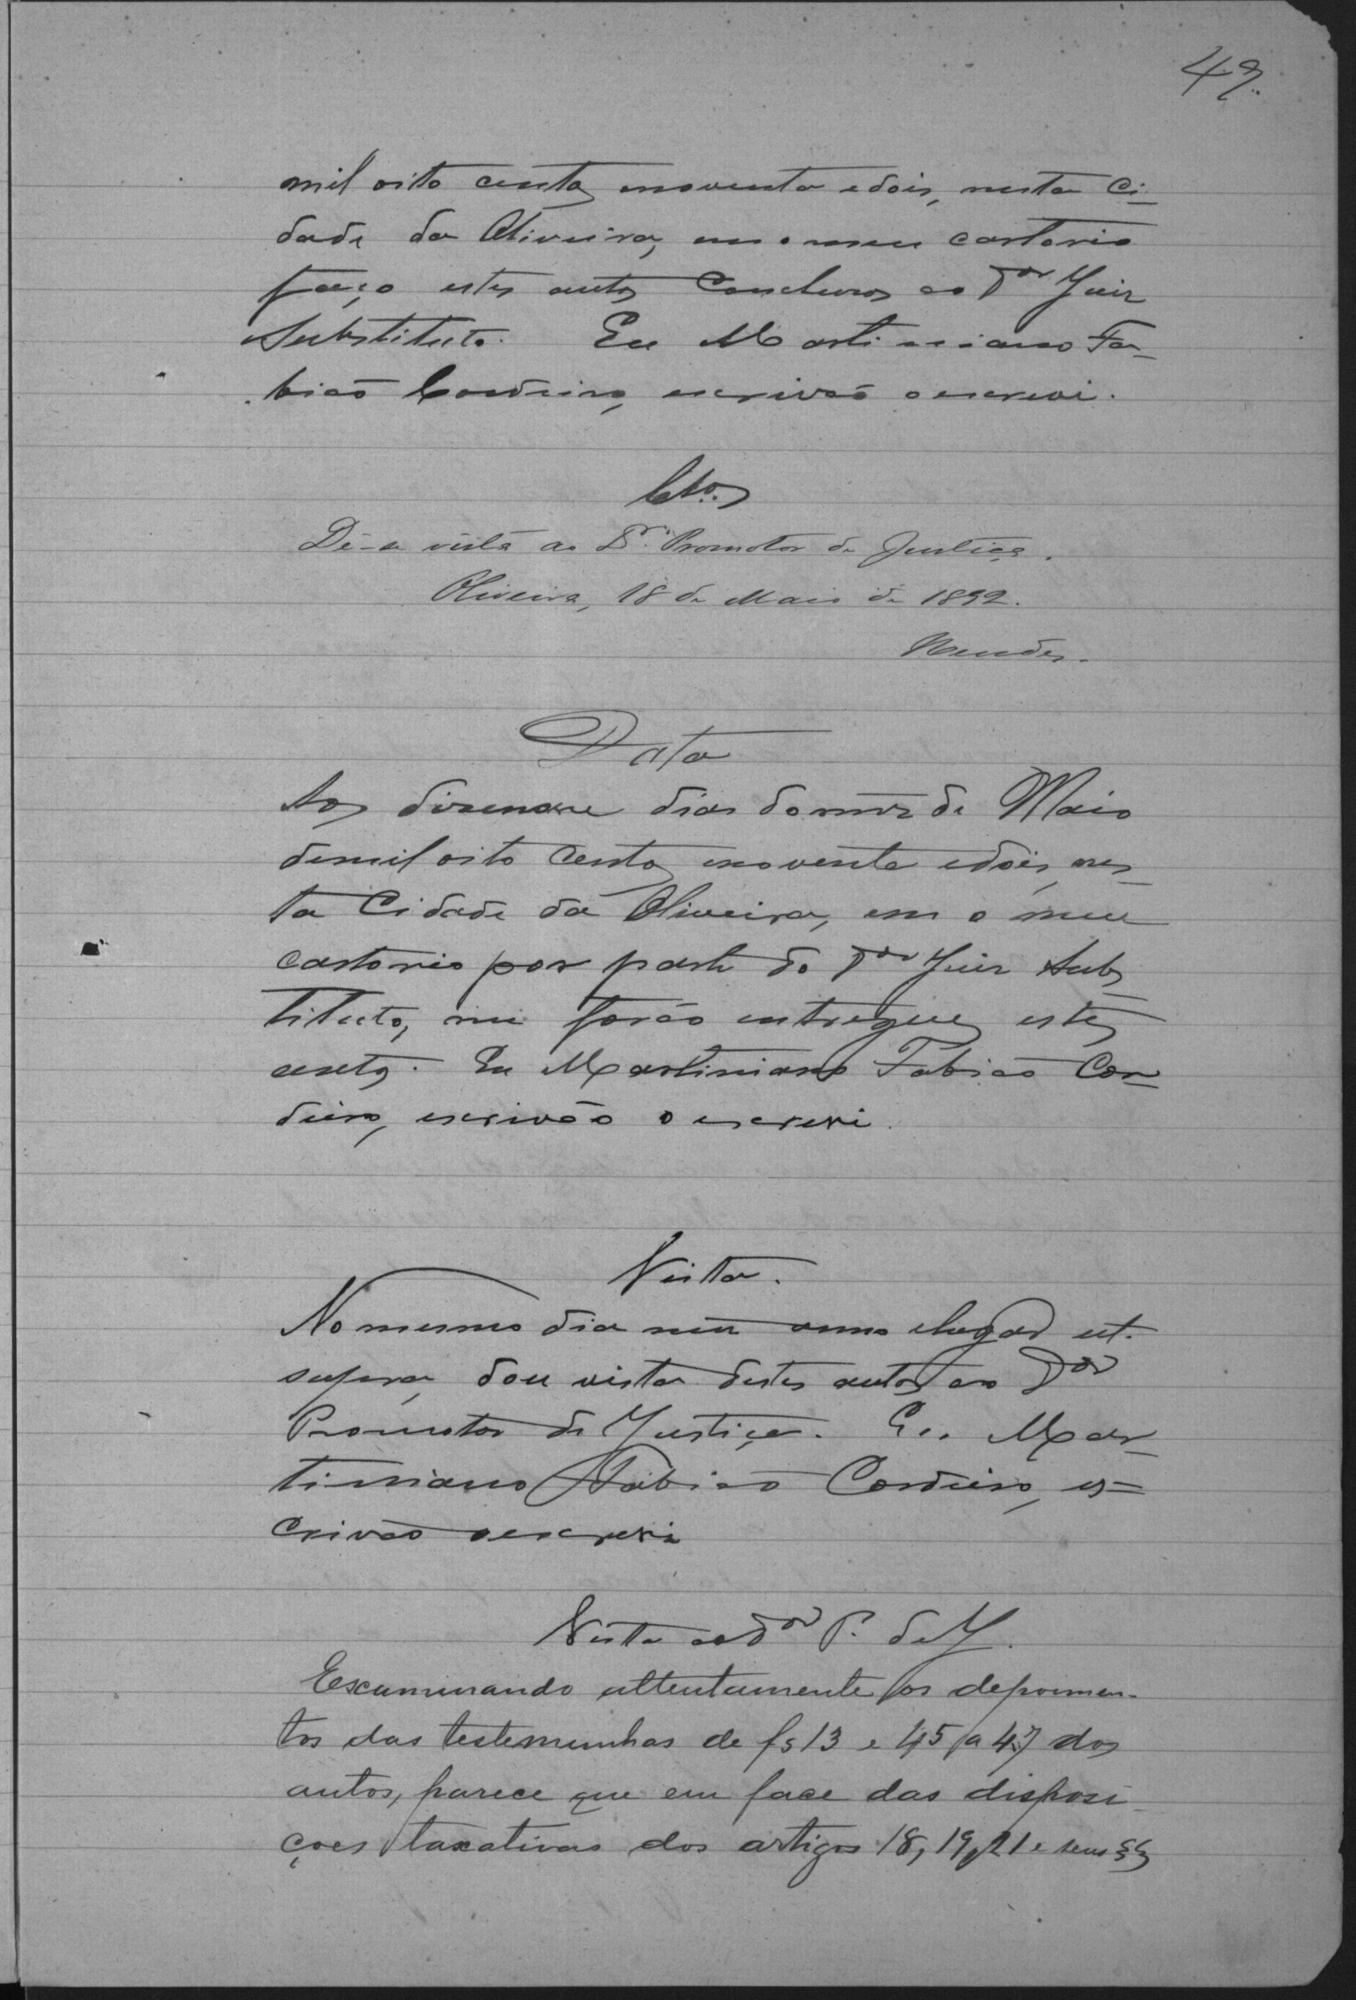 49.
mil oito centos e noventa e dois, nesta Ci-
dade da Oliveira, em o meu cartorio
faço estes autos Concluzos ao Dor Juiz
Substituto. Eu Martiniano Fa-
bião Cordeiro, escrivão o escrevi.
Clos.
Dê-se vista ao Dr. Promotor de Justiça.
Oliveira, 18 de Maio de 1892.
Mendes.
Data
Aos dizenove dias do mez de Maio
de mil oito centos e noventa e dois, nes-
ta Cidade da Oliveira, em o meu
cartorio por parte do Dor Juiz Subs-
tituto, me forão entregues estes
autos. Eu Martiniano Fabião Cor-
deiro, escrivão o escrevi.
Vista.
No mesmo dia mez anno e lugar ut-
supra, dou vista destes autos ao Dor
Promotor de Justiça. Eu Mar-
tiniano Fabião Cordeiro, es-
crivão o escrevi
Vista ao Dor P. de J.
Escaminando attentamente os depoimen-
tos das testemunhas de fs 13 e 45 a 47 dos
autos, parece que em face das disposi-
ções taxativas dos artigos 18, 19, 21 e seus §§